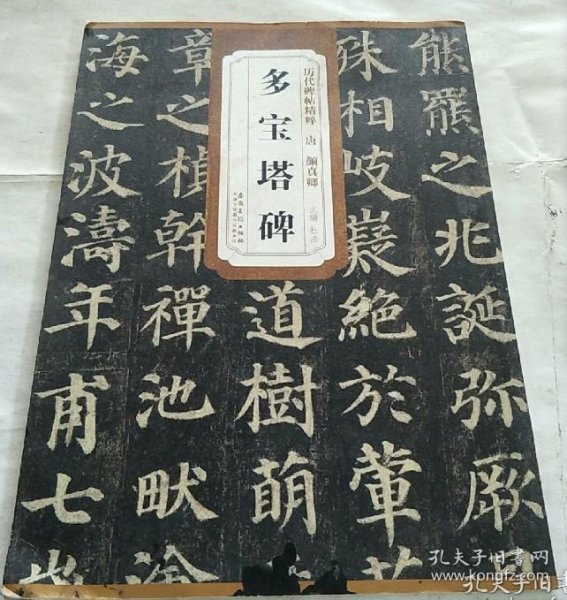 历代碑帖精粹 唐 颜真卿
多宝塔碑
主编 杜浩
安徽美术出版社
熊羆之兆誕弥厥
殊相岐嶷絶於葷
道樹萌
章之楨幹禪池畎
海之波濤年甫七
孔夫子旧书网
www.kongfz.com
孔夫子旧书